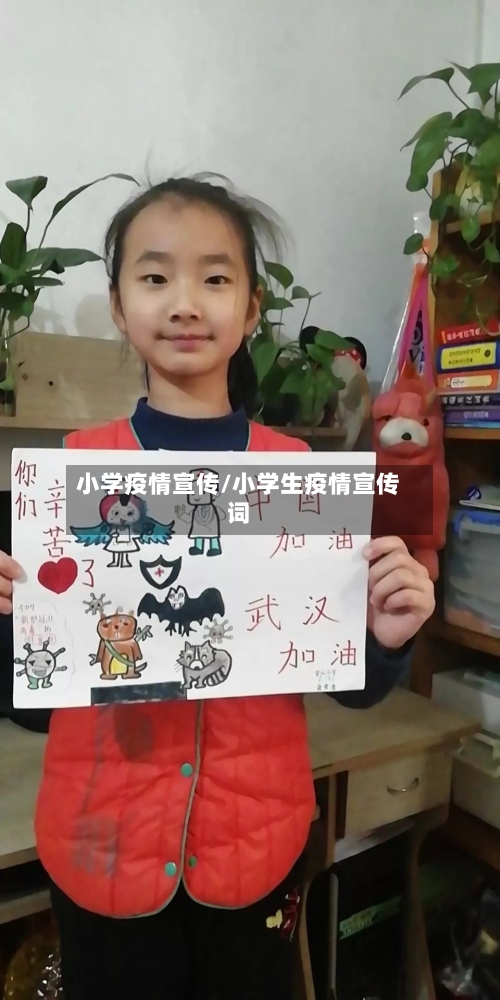 小学疫情宣传/小学生疫情宣传
词
你们
辛苦
了
中国
加油
武汉
加油